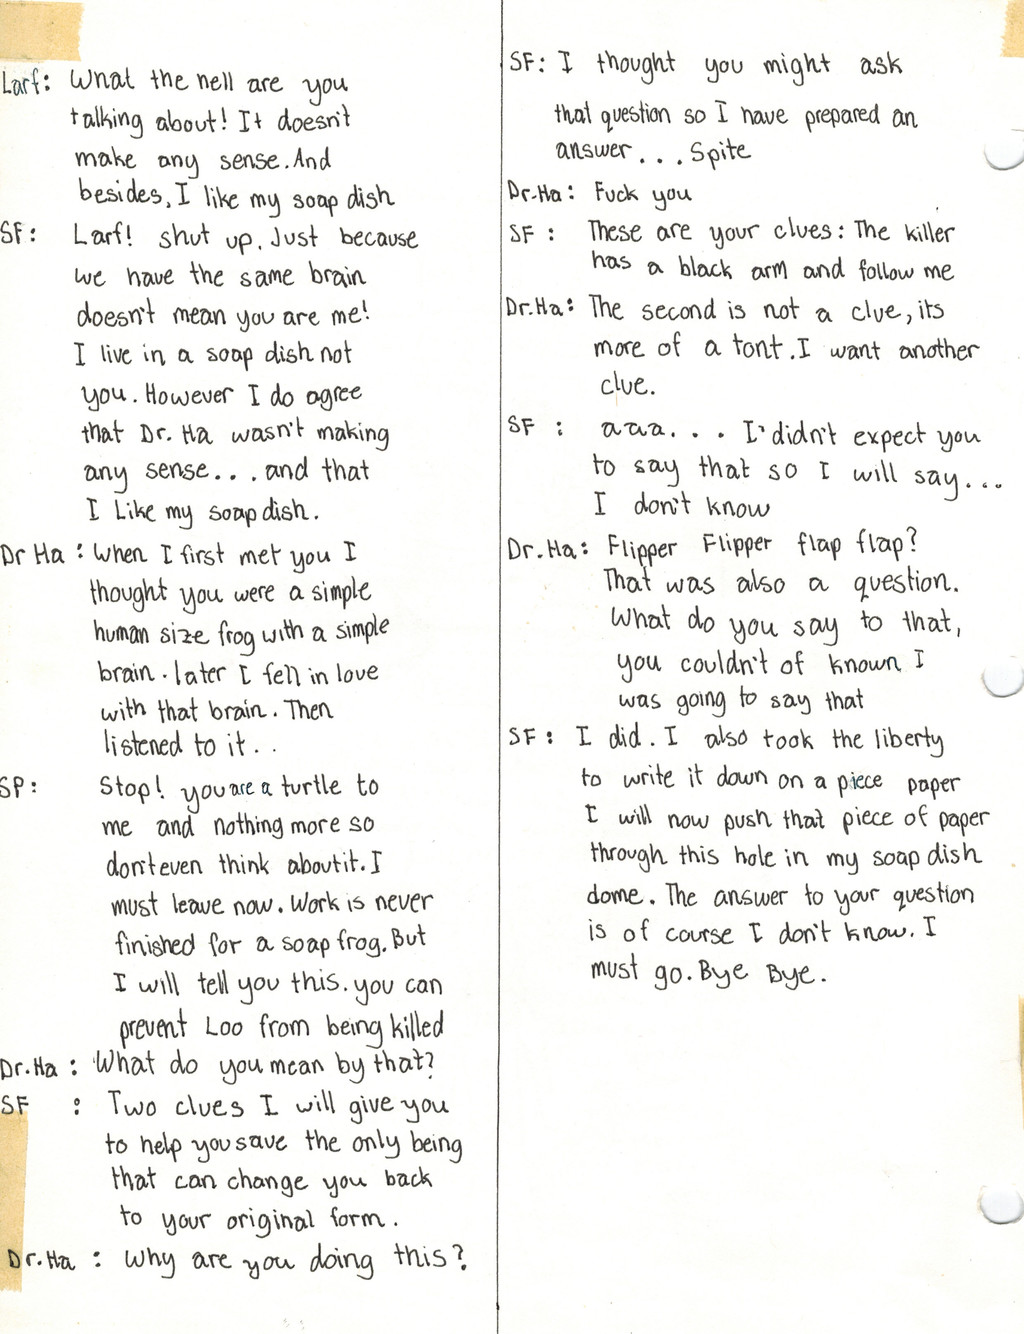 Larf: What the nell are you
talking about! It doesn't
make any sense. And
besides, I like my soap dish
SF: Larf! shut up. Just because
we have the same brain
doesn't mean you are me!
I live in a soap dish not
you. However I do agree
that Dr. Ha wasn't making
any sense... and that
I Like my soap dish.
Dr Ha: When I first met you I
thought you were a simple
human size frog with a simple
brain. later I fell in love
with that brain. Then
listened to it..
SP: Stop! you are a turtle to
me and nothing more so
don't even think about it. I
must leave now. Work is never
finished for a soap frog. But
I will tell you this. you can
prevent Loo from being killed
Dr. Ha: What do you mean by that?
SF: Two clues I will give you
to help you save the only being
that can change you back
to your original form.
Dr. Ha: Why are you doing this?
SF: I thought you might ask
that question so I have prepared an
answer... Spite
Dr. Ha: Fuck you
SF: These are your clues: The killer
has a black arm and follow me
Dr. Ha: The second is not a clue, its
more of a tont. I want another
clue.
SF: aaa... I didn't expect you
to say that so I will say...
I don't know
Dr. Ha: Flipper Flipper flap flap?
That was also a question.
What do you say to that,
you couldn't of known I
was going to say that
SF: I did. I also took the liberty
to write it down on a piece paper
I will now push that piece of paper
through this hole in my soap dish
dome. The answer to your question
is of course I don't know. I
must go. Bye Bye.